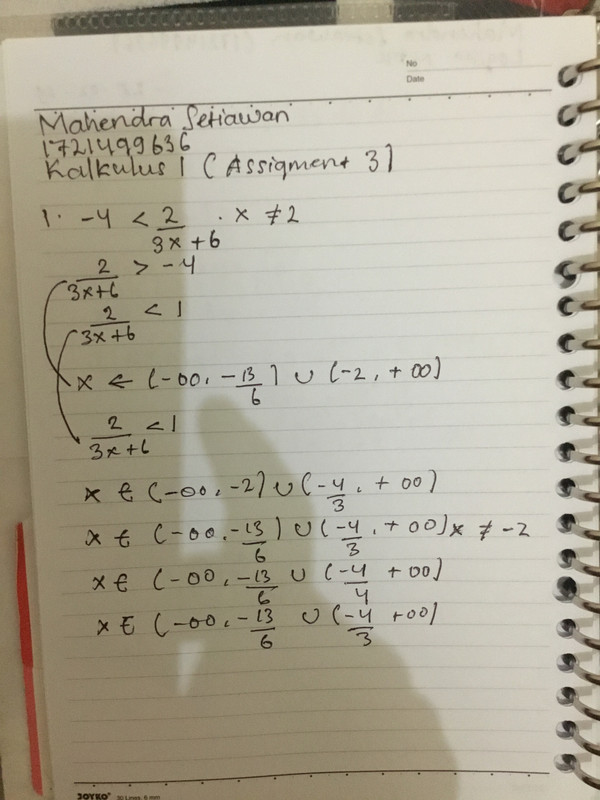 No
Date
Mahendra Setiawan
1721499636
Kalkulus 1 (Assigment 3)
1. -4 < 2/3x+6 . x ≠ 2
2/3x+6 > -4
2/3x+6 < 1
x ← (-∞, -13/6) ∪ (-2, +∞)
2/3x+6 < 1
x ∈ (-∞, -2) ∪ (-4/3, +∞)
x ∈ (-∞, -13/6) ∪ (-4/3, +∞) x ≠ -2
x ∈ (-∞, -13/6 ∪ (-4/4 +∞)
x ∈ (-∞, -13/6 ∪ (-4/3 +∞)
JOYKO